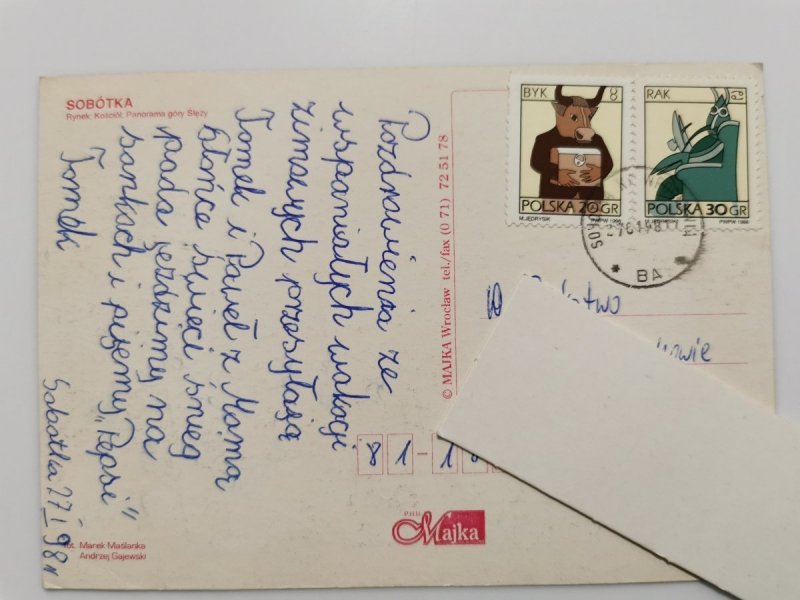 SOBÓTKA
Rynek; Kościół; Panorama góry Ślęży
Pozdrowienia ze
wspaniałych wakacji
zimowych przesyłają
Tomek i Paweł z Mamą
Słońce świeci śnieg
pada jeździmy na
sankach i pijemy „Pepsi”
Tomek
Sobótka 27 I 98r
Fot. Marek Maślanka
Andrzej Gajewski
© MAJKA Wrocław tel./fax (0 71) 72 51 78
BYK
POLSKA 20 GR
M.JĘDRYSIK PWPW 1996
RAK
POLSKA 30 GR
PWPW 1996
BA
8 1 - 1
P.H.U.
Majka